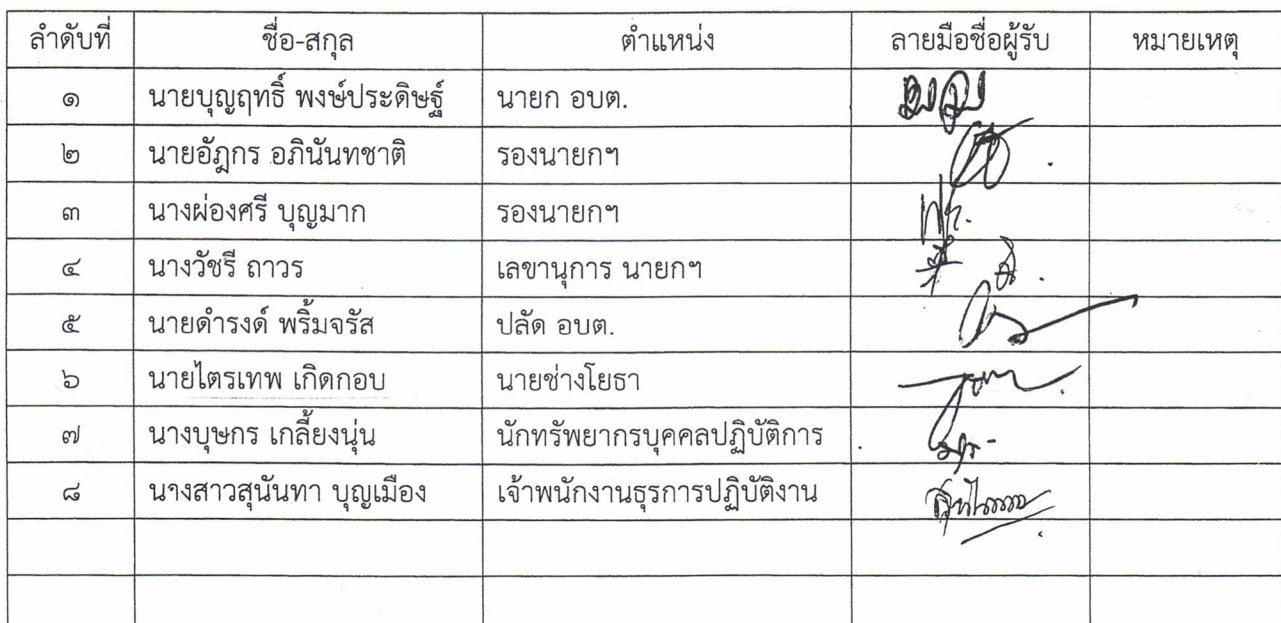 ลำดับที่ ชื่อ-สกุล ตำแหน่ง ลายมือชื่อผู้รับ หมายเหตุ
๑ นายบุญฤทธิ์ พงษ์ประดิษฐ์ นายก อบต.
๒ นายอัฎกร อภินันทชาติ รองนายกฯ
๓ นางผ่องศรี บุญมาก รองนายกฯ
๔ นางวัชรี ถาวร เลขานุการ นายกฯ
๕ นายดำรงด์ พริ้มจรัส ปลัด อบต.
๖ นายไตรเทพ เกิดกอบ นายช่างโยธา
๗ นางบุษกร เกลี้ยงนุ่น นักทรัพยากรบุคคลปฏิบัติการ
๘ นางสาวสุนันทา บุญเมือง เจ้าพนักงานธุรการปฏิบัติงาน